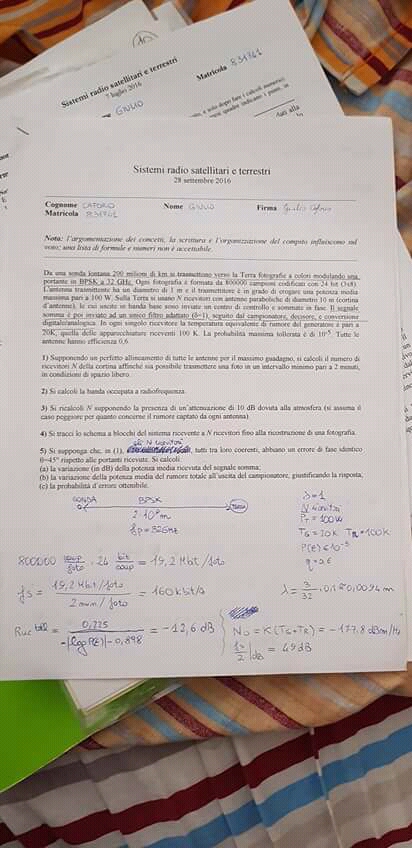 Sistemi radio satellitari e terrestri
7 luglio 2016
Matricola 831761
GIULIO
Sistemi radio satellitari e terrestri
28 settembre 2016
Cognome CAFORIO Nome GIULIO Firma
Matricola 831761
Nota: l'argomentazione dei concetti, la scrittura e l'organizzazione del compito influiscono sul
voto; una lista di formule e numeri non è accettabile.
Da una sonda lontana 200 milioni di km si trasmettono verso la Terra fotografie a colori modulando una
portante in BPSK a 32 GHz. Ogni fotografia è formata da 800000 campioni codificati con 24 bit (3x8).
L'antenna trasmittente ha un diametro di 1 m e il trasmettitore è in grado di erogare una potenza media
massima pari a 100 W. Sulla Terra si usano N ricevitori con antenne paraboliche di diametro 10 m (cortina
d'antenne), le cui uscite in banda base sono inviate un centro di controllo e sommate in fase. Il segnale
somma è poi inviato ad un unico filtro adattato (δ=1), seguito dal campionatore, decisore, e conversione
digitale/analogica. In ogni singolo ricevitore la temperatura equivalente di rumore del generatore è pari a
20K, quella delle apparecchiature riceventi 100 K. La probabilità massima tollerata è di 10⁻⁵. Tutte le
antenne hanno efficienza 0,6
1) Supponendo un perfetto allineamento di tutte le antenne per il massimo guadagno, si calcoli il numero di
ricevitori N della cortina affinché sia possibile trasmettere una foto in un intervallo minimo pari a 2 minuti,
in condizioni di spazio libero.
2) Si calcoli la banda occupata a radiofrequenza.
3) Si ricalcoli N supponendo la presenza di un'attenuazione di 10 dB dovuta alla atmosfera (si assuma il
caso peggiore per quanto concerne il rumore captato da ogni antenna).
4) Si tracci lo schema a blocchi del sistema ricevente a N ricevitori fino alla ricostruzione di una fotografia.
gli N ricevitori
5) Si supponga che, in (1), tutti tra loro correnti, abbiano un errore di fase identico
θ=45° rispetto alle portanti ricevute. Si calcoli
(a) la variazione (in dB) della potenza media ricevuta del segnale somma;
(b) la variazione della potenza media del rumore totale all'uscita del campionatore, giustificando la risposta;
(c) la probabilità d'errore ottenibile.
SONDA BPSK
TERRA
fp=32GHz
δ=1
PT = 100W
TG=20K TR=100K
P(E)≤10⁻⁵
η=0,6
800000 camp/foto · 24 bit/camp = 19,2 Mbit/foto
fs = 19,2 Mbit/foto / 2 min/foto = 160 kbit/s
= -12,6 dB
N₀ = K(TG+TR) = -177,8 dBm/Hz
= 49dB